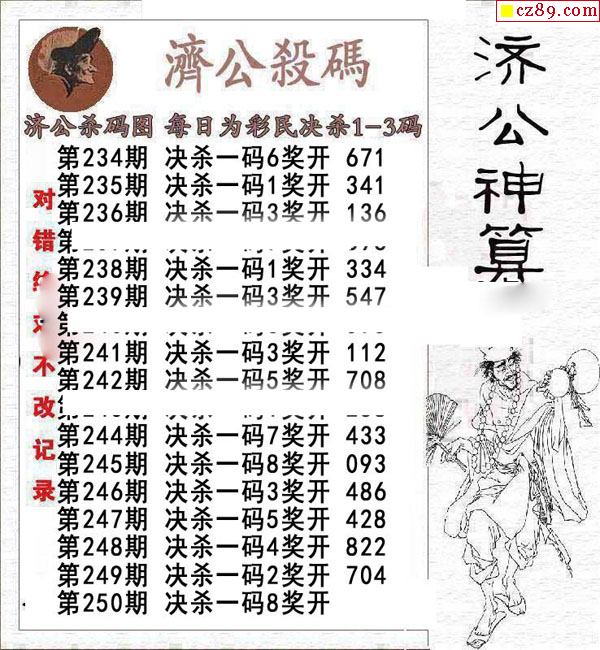 cz89.com
濟公殺碼
济公杀码图 每日为彩民决杀1-3码
第234期 决杀一码6奖开 671
第235期 决杀一码1奖开 341
第236期 决杀一码3奖开 136
第238期 决杀一码1奖开 334
第239期 决杀一码3奖开 547
第241期 决杀一码3奖开 112
第242期 决杀一码5奖开 708
第244期 决杀一码7奖开 433
第245期 决杀一码8奖开 093
第246期 决杀一码3奖开 486
第247期 决杀一码5奖开 428
第248期 决杀一码4奖开 822
第249期 决杀一码2奖开 704
第250期 决杀一码8奖开
对错绝对不改记录
济公神算